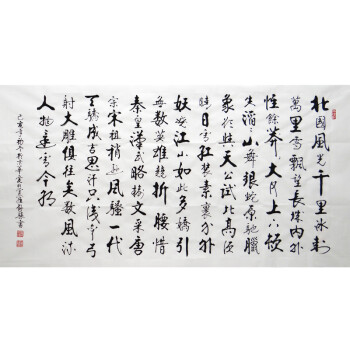 北國風光千里冰封
萬里雪飄望長城內外
惟餘莽莽大河上下頓
失滔滔山舞銀蛇原馳臘
象欲與天公試比高須
晴日看紅裝素裹分外
妖嬈江山如此多嬌引
無數英雄競折腰惜
秦皇漢武略輸文采唐
宗宋祖稍遜風騷一代
天驕成吉思汗只識彎弓
射大雕俱往矣數風流
人物還看今朝